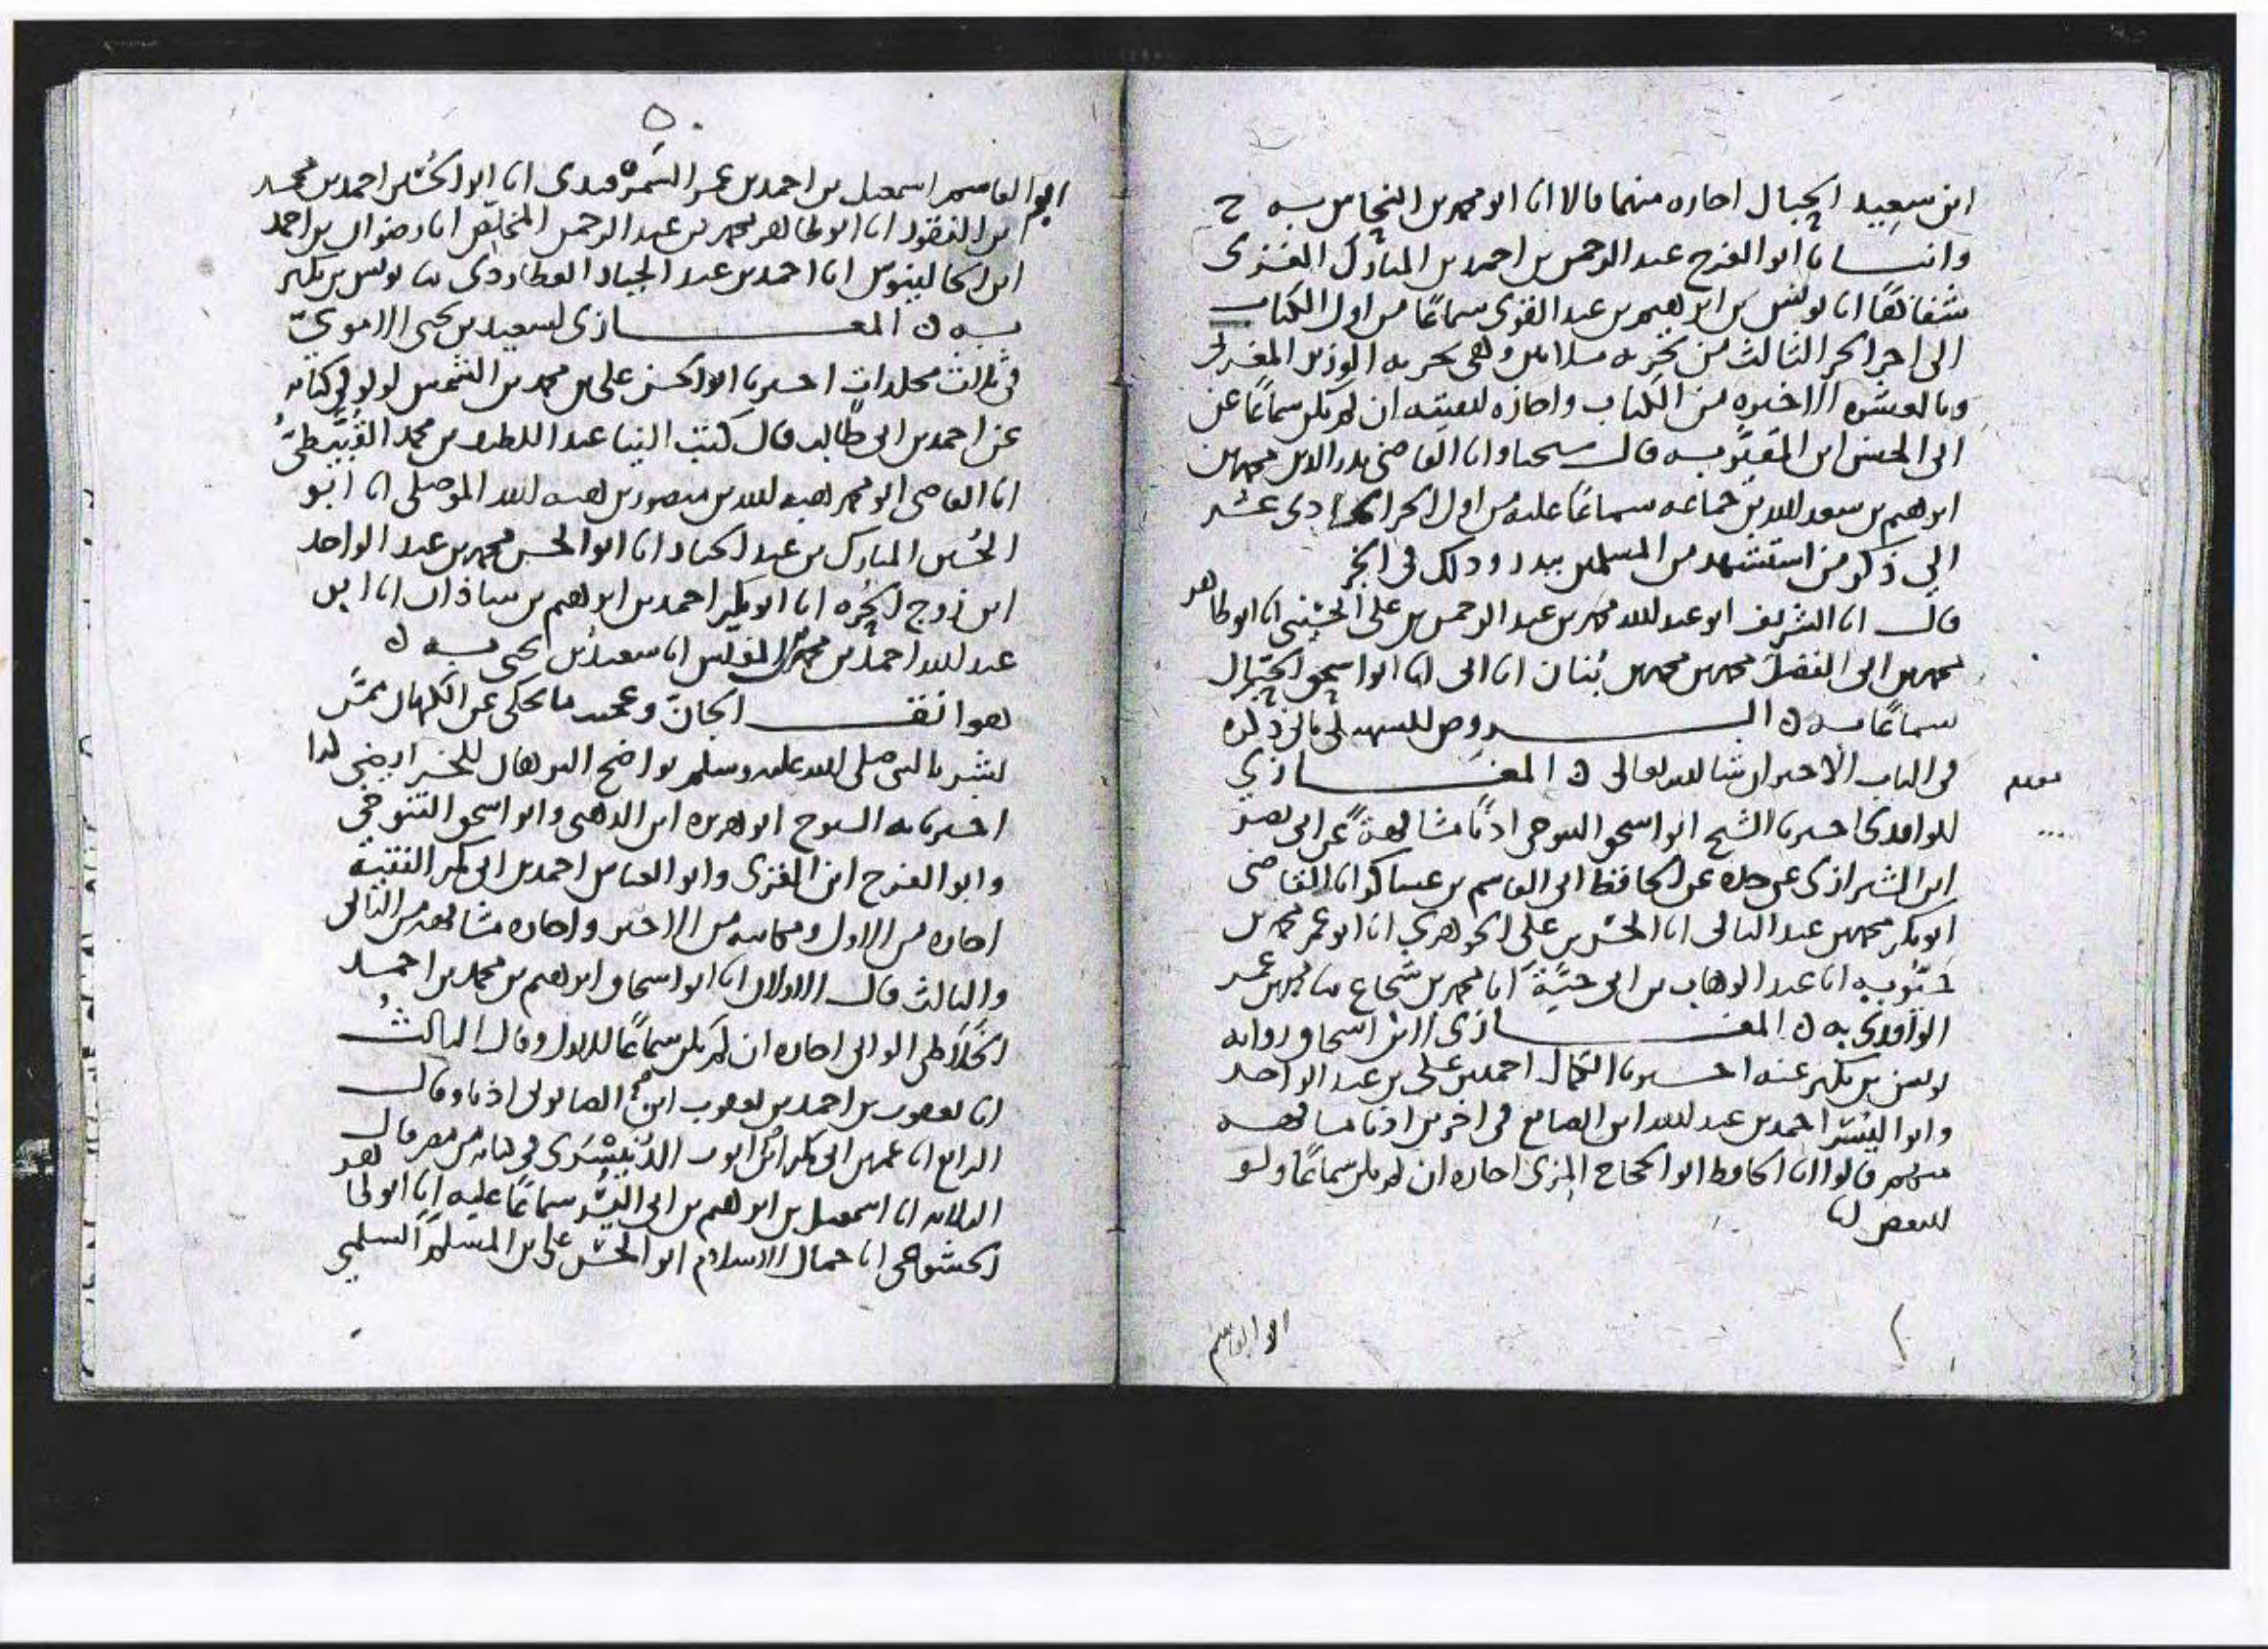 ابن سعيد الحبال اجازه منهما قالا انا ابو محمد بن النحاس به ح
وانبانا ابو الفرج عبد الرحمن بن احمد بن المبارك الغزى
شفاها انا يونس بن ابرهيم بن عبد القوى سماعًا من اول الكتاب
الى اخر الجز الثالث من تجزيه وهى تجزيه الوزير المغربى
وبالعشره الاخيره من الكتاب واجازه لبقيته ان لم يكن سماعًا عن
ابى الحسن ابن المقير به قال شيخنا وانا القاضى بدر الدين محمد بن
ابرهيم بن سعد الله بن جماعه سماعًا عليه من اول الجز الحادى عشر
الى ذكر من استشهد من المسلمين ببدر وذلك فى الجز
قال انا الشريف ابو عبد الله محمد بن عبد الرحمن بن على الحسينى انا ابو طاهر
محمد بن ابى الفضل محمد بن محمد بن بنان انا ابى انا ابو اسحق الحبال
سماعًا به ن الـــروض للسهيلى ياتى ذكره
فى الباب الاخير ان شا الله تعالى ن المغـــازي
للواقدى اخبرنا الشيخ ابو اسحق التنوخى اذنًا مشافهةً عن ابى نصر
ابن الشيرازى عن جده عن الحافظ ابى القاسم بن عساكر انا القاضى
ابو بكر محمد بن عبد الباقى انا الحسن بن على الجوهري انا ابو عمر محمد بن
حيويه انا عبد الوهاب بن ابى حيَّة انا محمد بن شجاع ثنا محمد بن عمر
الواقدي به ن المغـــازى لابن اسحاق روايه
يونس بن بكير عنه اخبرنا الكمال احمد بن على بن عبد الواحد
وابو اليسر احمد بن عبد الله ابن الصايغ فى اخرين اذنا مشافهه
منهم قالوا انا الحافظ ابو الحجاج المزى اجازه ان لم يكن سماعًا ولو
لبعض انا
انا ابو القاسم
ابو القاسم اسمعيل بن احمد بن عمر السمرقندى انا ابو الحسين احمد بن محمد
ابن النقور انا ابو طاهر محمد بن عبد الرحمن المخلص انا رضوان بن احمد
ابن الجالينوس انا احمد بن عبد الجبار العطاردى ثنا يونس بن بكير
به ن المغـــازى لسعيد بن يحيى الاموىّ
فى ثلاث مجلدات اخبرنا ابو الحسن على بن محمد بن الشمس لولو فى كتابه
عن احمد بن ابى طالب قال كتب الينا عبد اللطيف بن محمد القُبَّيطىّ
انا القاضى ابو محمد هبه الله بن منصور بن هبه الله الموصلى انا ابو
الحسين المبارك بن عبد الجبار انا ابو الحسن محمد بن عبد الواحد
ابن زوج الحره انا ابو بكر احمد بن ابرهيم بن شاذان انا ابن
عبد الله احمد بن محمد بن المغلس انا سعيد بن يحيى به ن
هواتف الجانّ وعجيب ما يحكى عن الكهان ممّن
بشر بالنبى صلى الله عليه وسلم بواضح البرهان للخرايطى
اخبرنا به الشيوخ ابو هريره ابن الذهبى وابو اسحق التنوخى
وابو الفرج ابن الغزى وابو العباس احمد بن ابى بكر الفقيه
اجازه من الاول ومكاتبه من الاخير واجازه مشافهه من الثانى
والثالث قال الاولان انا ابو اسحاق ابرهيم بن محمد بن احمد
الوانى اجازه ان لم يكن سماعًا للاول وقال الثالث
انا يعقوب بن احمد بن يعقوب ابن الصابونى اذنا وقال
الرابع انا عمر بن ابى بكر ابن ايوب الدُنَيسَرى فى كتابه من مصر قال
الثلاثه انا اسمعيل بن ابرهيم بن ابى اليسر سماعًا عليه انا ابو طاهر
الخشوعى انا جمال الاسلام ابو الحسن على بن المسلم السلمي